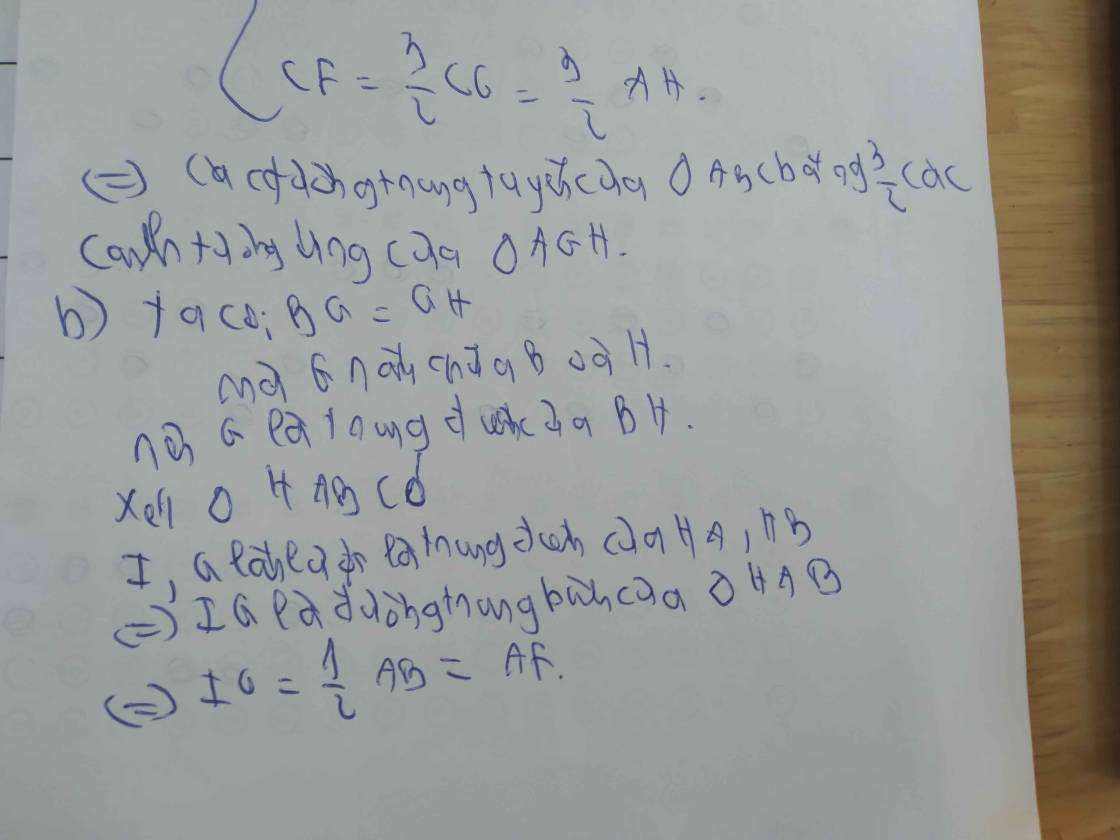 CF = 3/2 CG = 3/2 AH.
(=) Các đường trung tuyến của Δ ABC bằng 3/2 các
cạnh tương ứng của Δ AGH.
b) ta có: BG = GH
mà G nằm chữa B và H.
nên G là trung điểm của BH.
Xét Δ HAB CÓ
I, G lần lượt là trung điểm của HA, HB
(=) IG là đường trung bình của Δ HAB
(=) IG = 1/2 AB = AF.